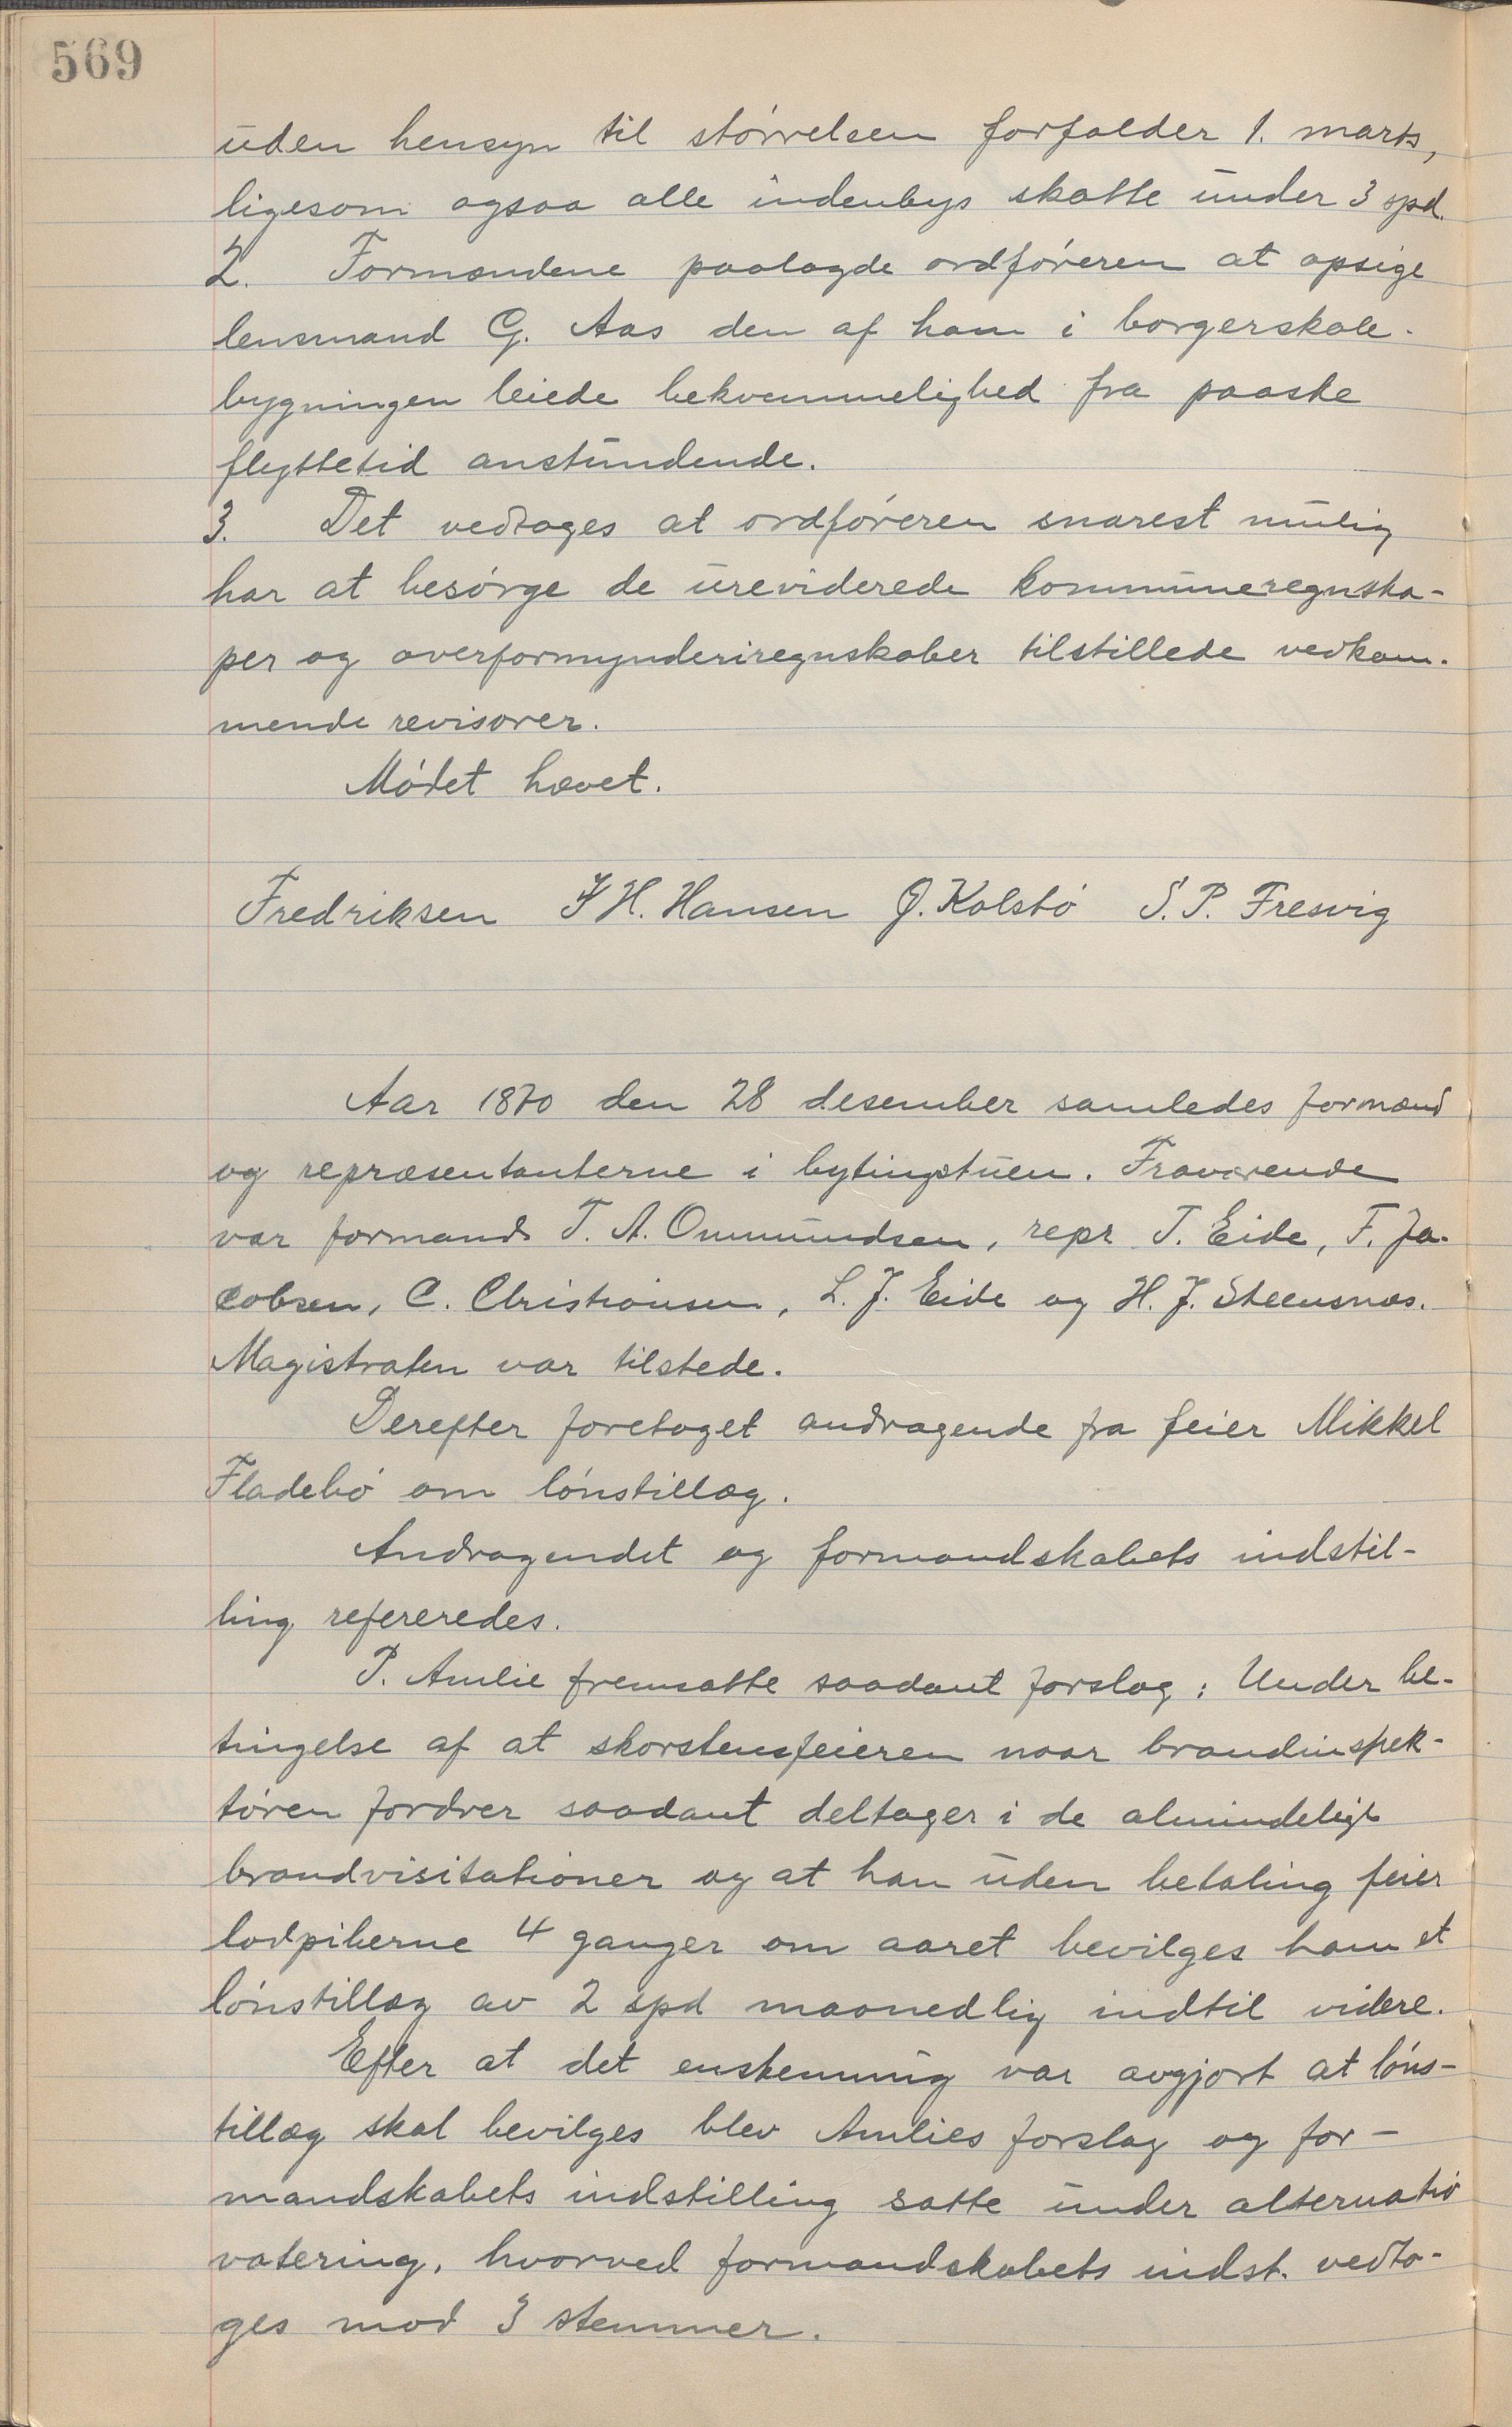 569
uden hensyn til størrelsen forfalder 1. marts,
ligesom ogsaa alle indenbys skatte under 3 spd.
2. Formændene paalagde ordføreren at opsige
lensmand G. Aas den af ham i borgerskole-
bygningen leiede bekvemmelighed fra paaske
flyttetid anstundende.
3. Det vedtages at ordføreren snarest mulig
har at besørge de ureviderede kommuneregnska-
per og overformynderiregnskaber tilstillede vedkom-
mende revisorer.
Mødet hævet.
Fredriksen F H. Hansen J. Kolstø S. P. Fresvig
Aar 1870 den 28 desember samledes formænd
og repræsentanterne i bytingstuen. Fraværende
var formænd T. A. Ommundsen, repr T. Eide, F. Ja-
cobsen, C. Christiansen, L. J. Eide og H. J. Steensnæs.
Magistraten var tilstede.
Derefter foretaget andragende fra feier Mikkel
Fladebø om lønstillæg.
Andragendet og formandskabets indstil-
ling refereredes.
P. Amlie fremsatte saadant forslag: Under be-
tingelse af at skorstensfeieren naar brandinspek-
tøren fordrer saadant deltager i de almindelige
brandvisitationer og at han uden betaling feier
lodpiberne 4 ganger om aaret bevilges ham et
lønstillæg av 2 spd maanedlig indtil videre.
Efter at det enstemmig var avgjort at løns-
tillæg skal bevilges blev Amlies forslag og for-
mandskabets indstilling satte under alternativ
votering, hvorved formandskabets indst. vedto-
ges mod 3 stemmer.